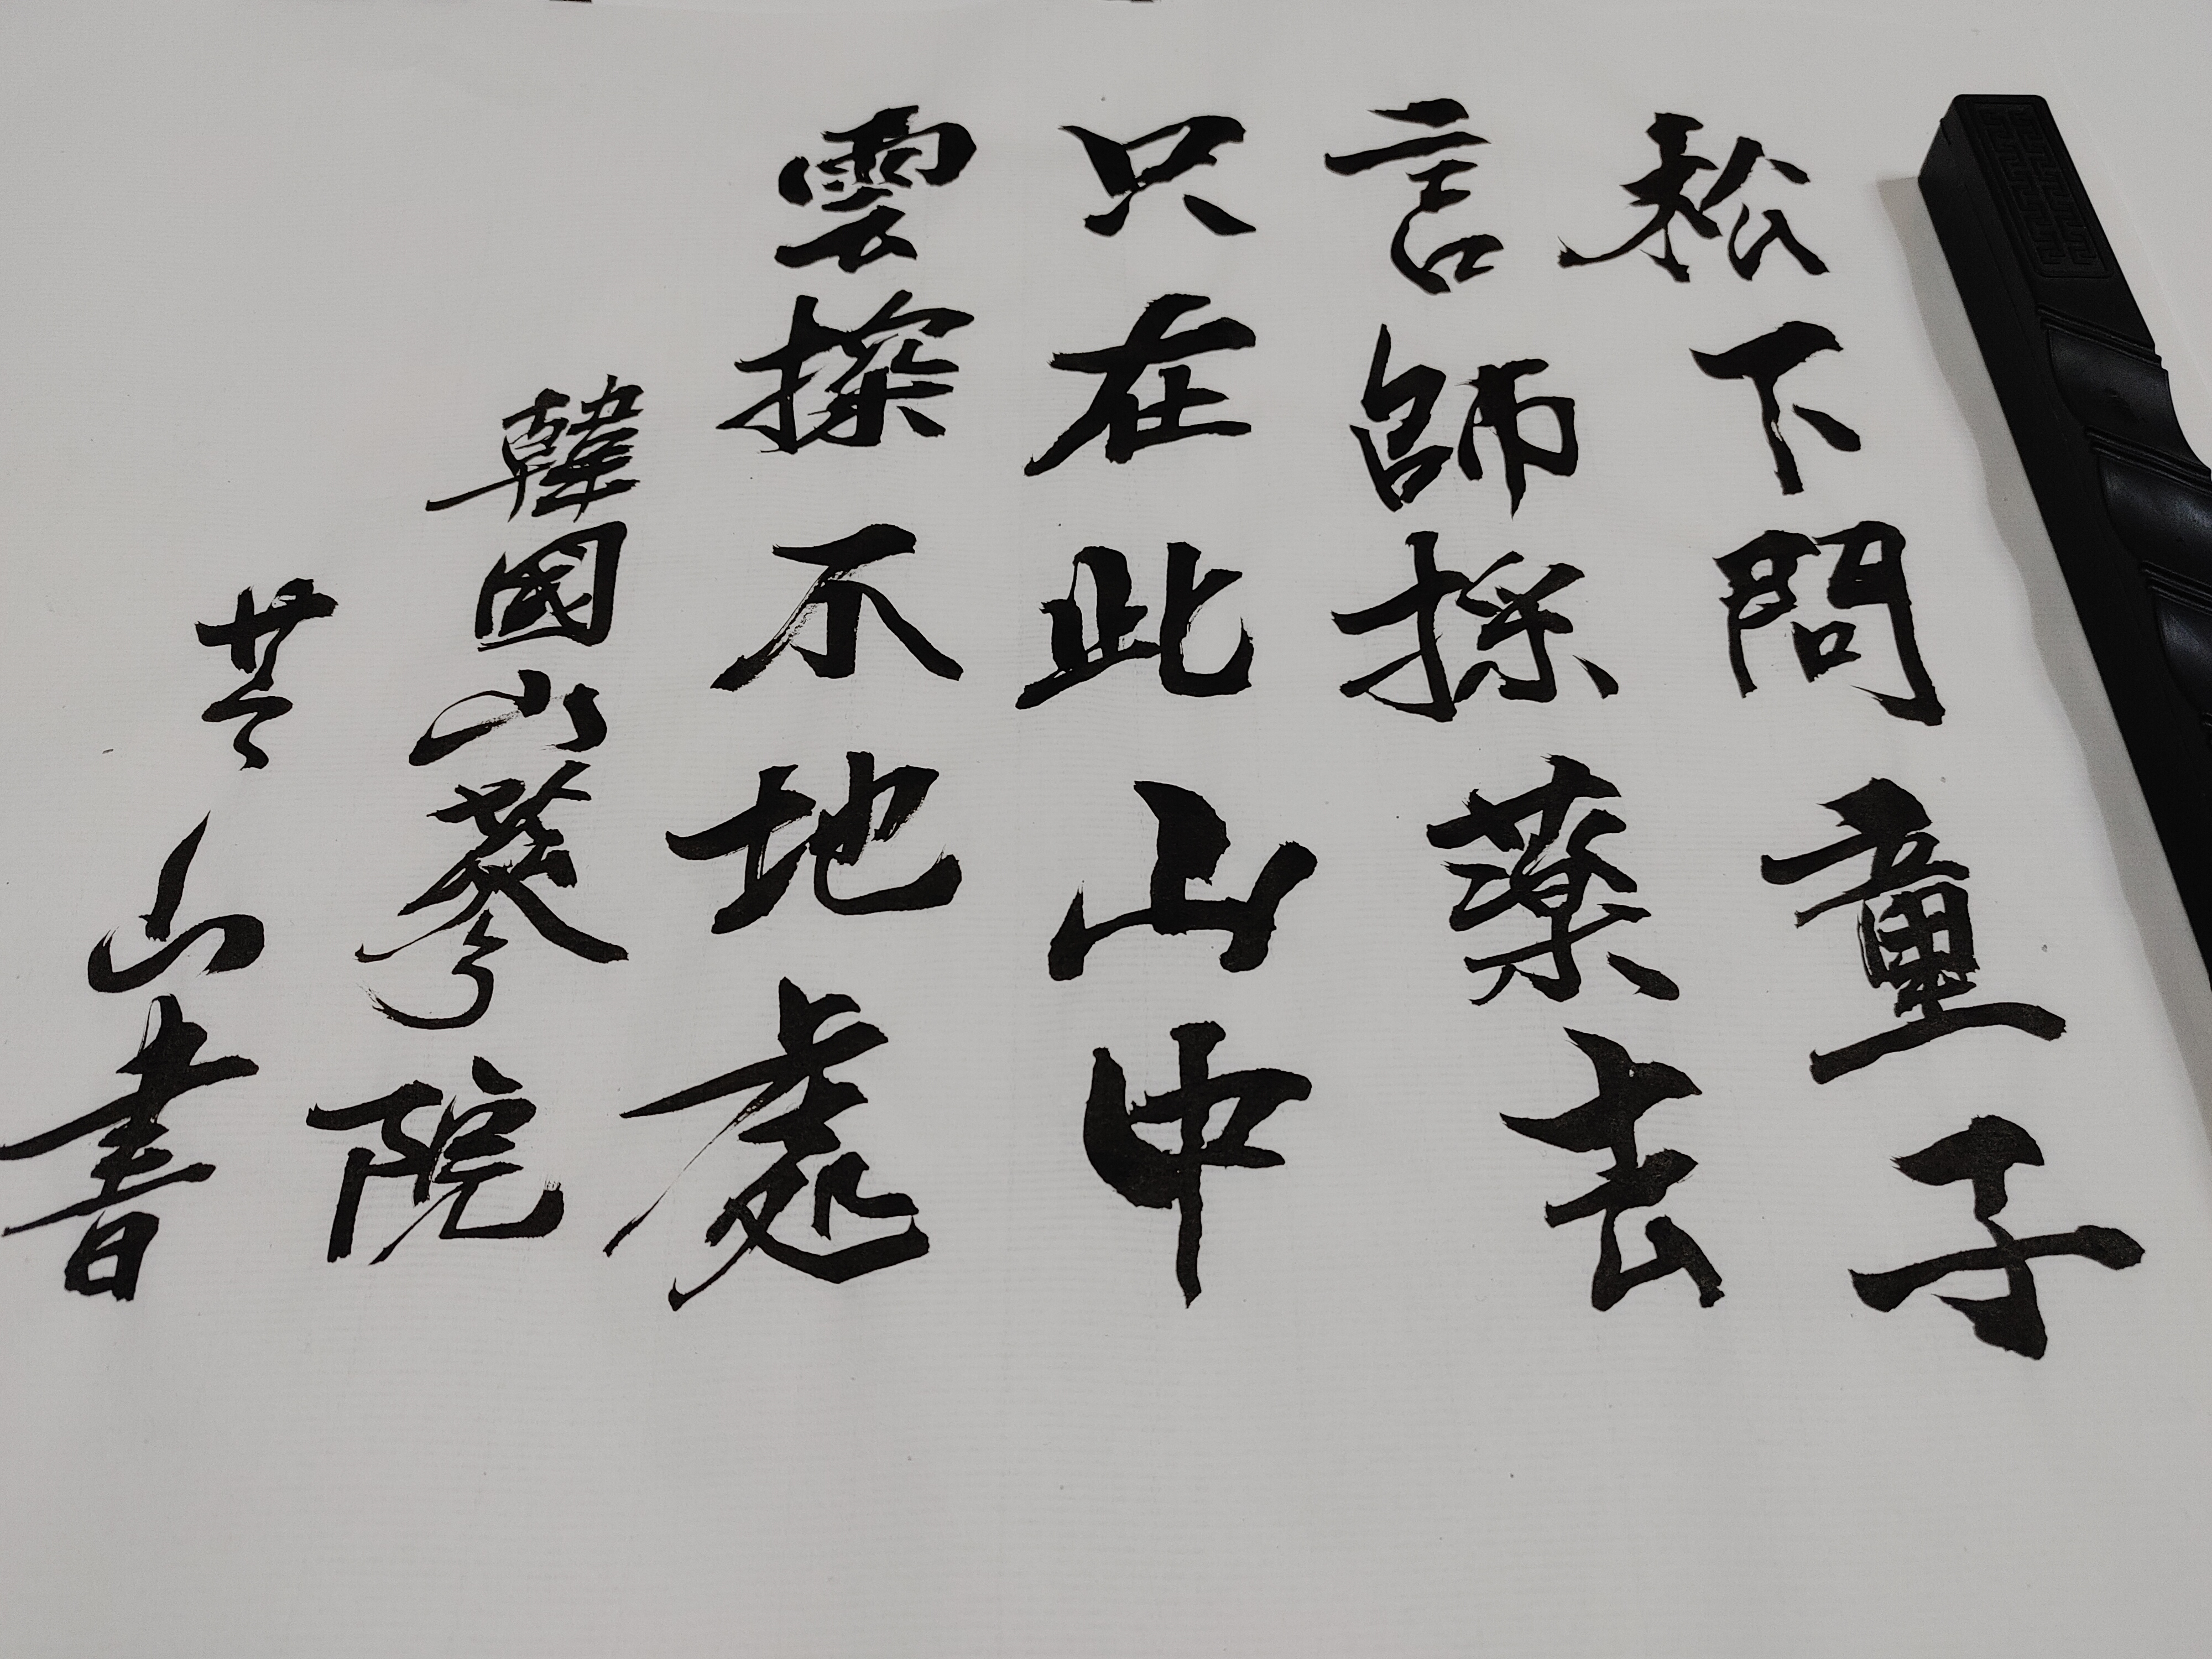 松下問童子
言師採薬去
只在此山中
雲探不地處
韓國山蔘院
芸山書